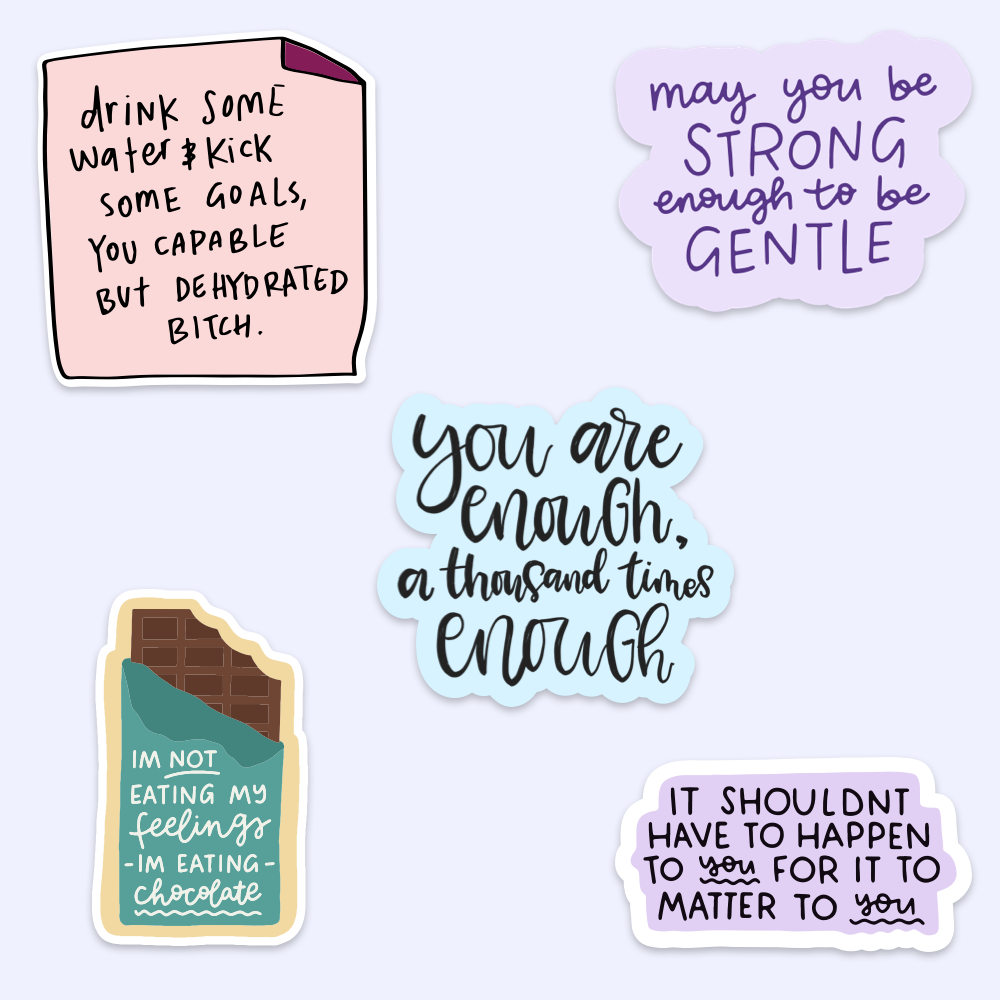 drink some
water & kick
some goals,
you capable
but dehydrated
bitch.
may you be
STRONG
enough to be
GENTLE
you are
enough,
a thousand times
enough
IM NOT
EATING MY
feelings
-IM EATING-
chocolate
IT SHOULDNT
HAVE TO HAPPEN
TO you FOR IT TO
MATTER TO you